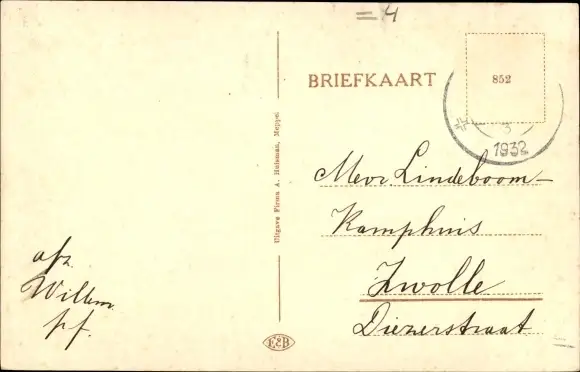 = 4
BRIEFKAART
852
3
1932
Mevr Lindeboom—
Kamphuis
Zwolle
Diezerstraat
Uitgave Firma A. Huisman, Meppel
afz.
Willem
pf.
E&B